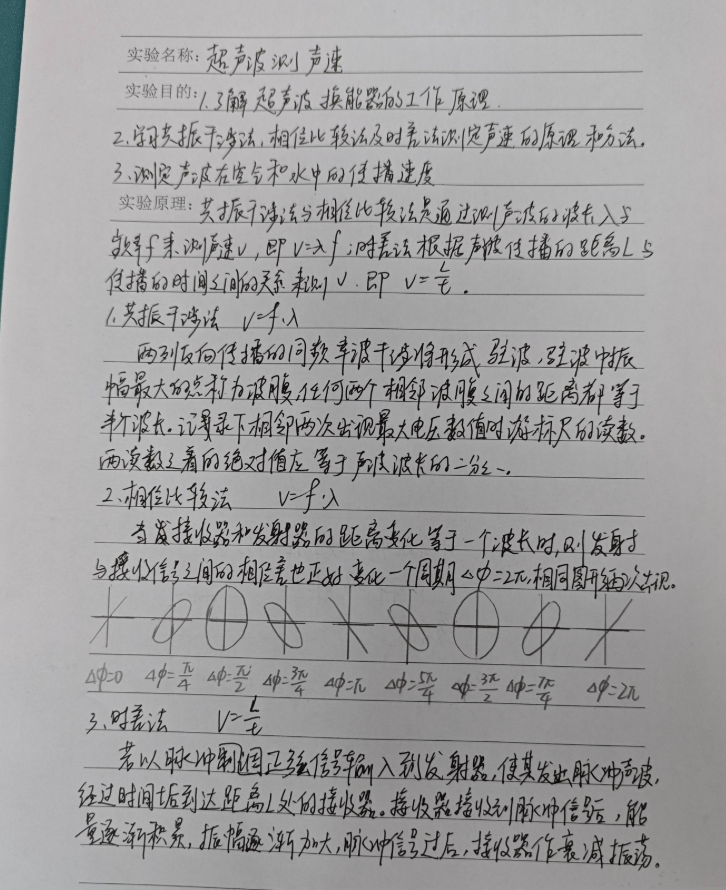 实验名称: 超声波测声速
实验目的: 1.了解超声波换能器的工作原理.
2.学习共振干涉法,相位比较法及时差法测定声速的原理和方法.
3.测定声波在空气和水中的传播速度
实验原理: 共振干涉法与相位比较法是通过测声波的波长λ与
频率f来测声速v,即v=λf;时差法根据声波传播的距离L与
传播的时间之间的关系来测v.即 v=L/t.
1.共振干涉法 v=f·λ
两列反向传播的同频率波干涉将形成驻波,驻波中振
幅最大的点称为波腹,任何两个相邻波腹之间的距离都等于
半个波长。记录下相邻两次出现最大电压数值时游标尺的读数。
两读数之差的绝对值应等于声波波长的二分之一。
2.相位比较法 v=f·λ
当接收器和发射器的距离变化等于一个波长时,则发射
与接收信号之间的相位差也正好变化一个周期Δφ=2π,相同图形再次出现。
Δφ=0 Δφ=π/4 Δφ=π/2 Δφ=3π/4 Δφ=π Δφ=5π/4 Δφ=3π/2 Δφ=7π/4 Δφ=2π
3.时差法 v=L/t
若以脉冲制正弦信号输入到发射器,使其发出脉冲声波,
经过时间t后到达距离L处的接收器。接收器接收到脉冲信号后,能
量逐渐积累,振幅逐渐加大,脉冲信号过后,接收器作衰减振荡。